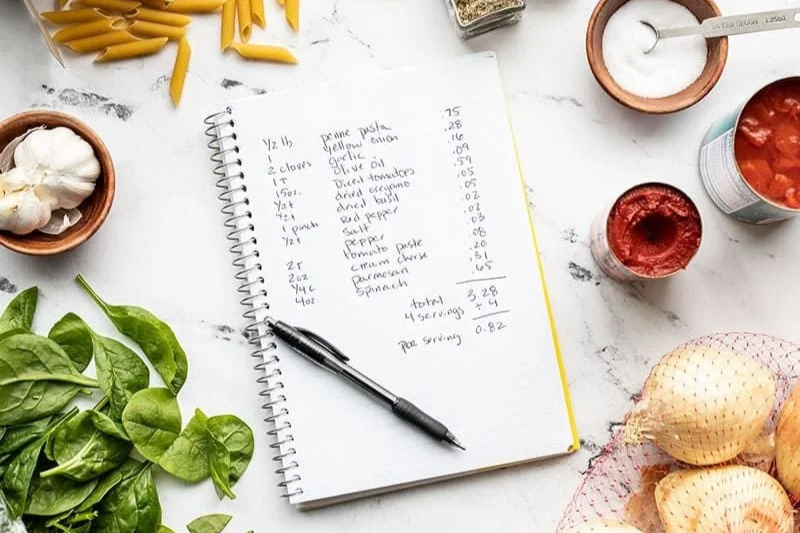 Y2 lb penne pasta .75
1 yellow onion .28
2 cloves garlic .16
1T olive oil .09
15oz. Diced tomatoes .59
Y2t dried oregano .05
Y2t dried basil .05
1 pinch Red pepper .02
Y2t salt .02
pepper .03
2T tomato paste .08
2oz cream cheese .20
Y4c parmesan .31
4oz. spinach .65
total 3.28
4 servings ÷ 4
per serving 0.82